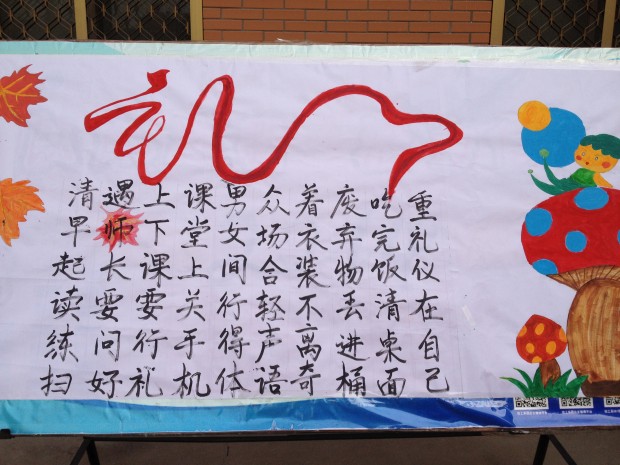 礼
清早起读练扫
遇师长要问好
上下课要行礼
课堂上关手机
男女间行得体
众场合轻声语
着衣装不离奇
废弃物丢进桶
吃完饭清桌面
重礼仪在自己